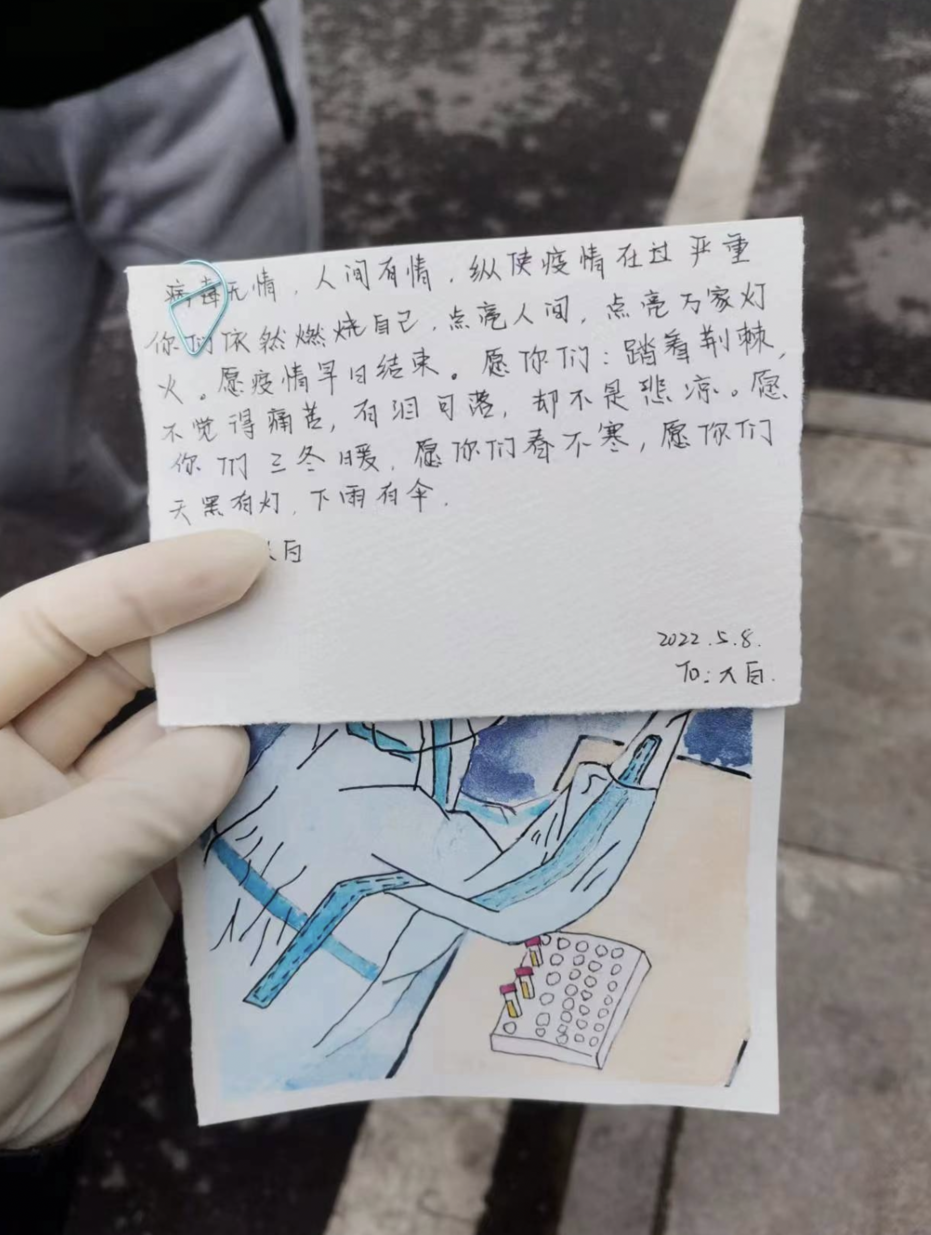 病毒无情，人间有情，纵使疫情在过严重
你们依然燃烧自己，点亮人间，点亮万家灯
火。愿疫情早日结束。愿你们：踏着荆棘，
不觉得痛苦，有泪可落，却不是悲凉。愿
你们三冬暖，愿你们春不寒，愿你们
天黑有灯，下雨有伞．
白
2022.5.8.
To：大白．